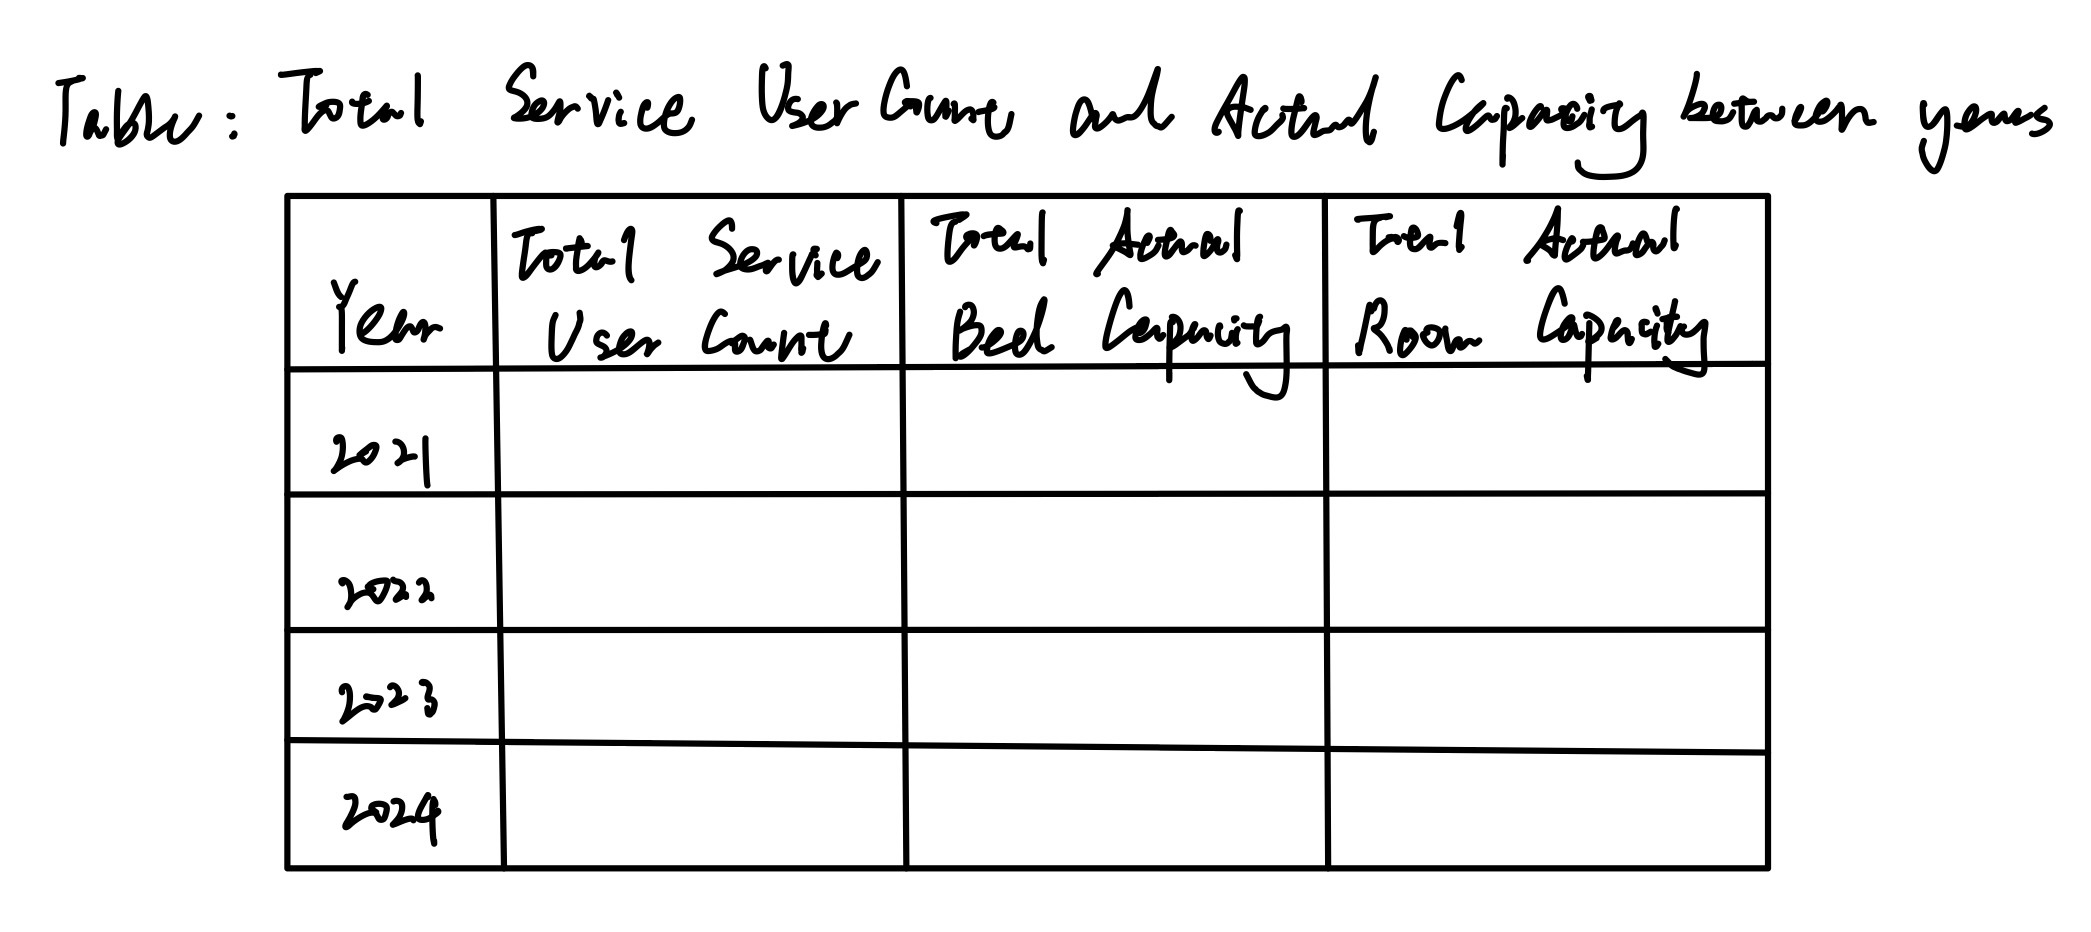 Table: Total Service User Count and Actual Capacity between years
Year
Total Service
User Count
Total Actual
Bed Capacity
Total Actual
Room Capacity
2021
2022
2023
2024